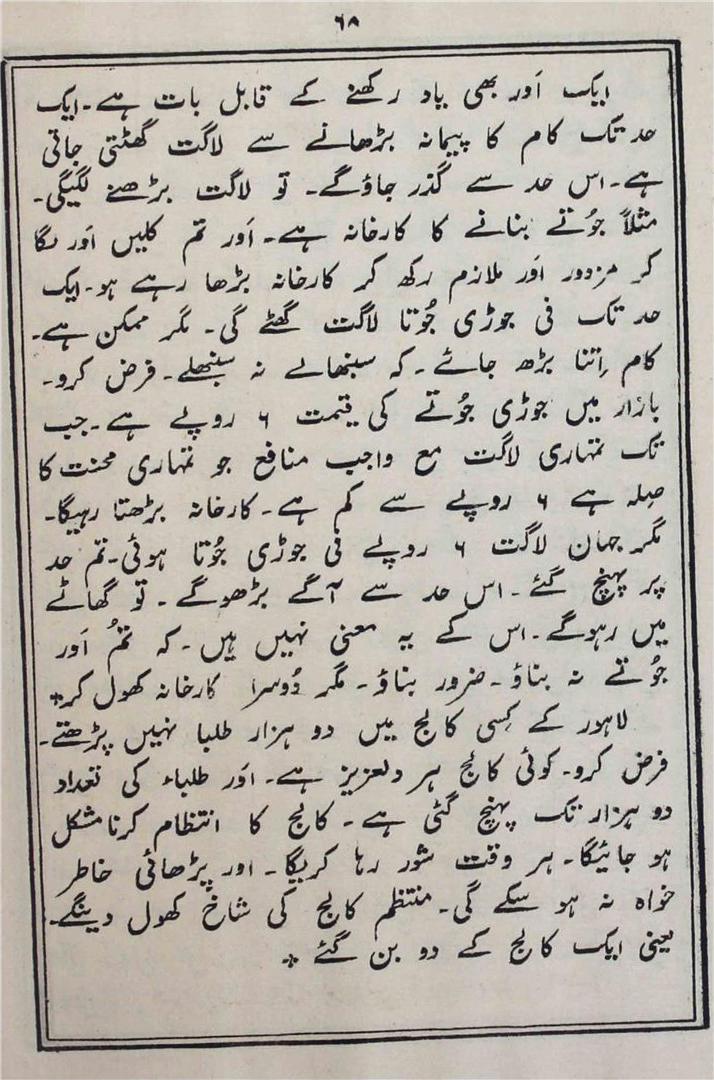 ٦٨
ایک اَور بھی یاد رکھنے کے قابل بات ہے۔ ایک
حد تک کام کا پیمانہ بڑھانے سے لاگت گھٹتی جاتی
ہے۔ اس حد سے گذر جاؤگے۔ تو لاگت بڑھنے لگیگی۔
مثلاً جُوتے بنانے کا کارخانہ ہے۔ اَور تم کلیں اَور لگا
کر مزدور اَور ملازم رکھ کر کارخانہ بڑھا رہے ہو۔ ایک
حد تک فی جوڑی جُوتا لاگت گھٹے گی۔ مگر ممکن ہے۔
کام اِتنا بڑھ جائے۔ کہ سنبھالے نہ سنبھلے۔ فرض کرو۔
بازار میں جوڑی جُوتے کی قیمت ٦ روپے ہے۔ جب
تک تمہاری لاگت مع واجب منافع جو تمہاری محنت کا
صِلہ ہے ٦ روپے سے کم ہے۔ کارخانہ بڑھتا رہیگا۔
مگر جہان لاگت ٦ روپے فی جوڑی جُوتا ہوئی۔ تم حد
پر پہنچ گئے۔ اس حد سے آگے بڑھوگے۔ تو گھاٹے
میں رہوگے۔ اس کے یہ معنی نہیں ہیں۔ کہ تمُ اَور
جُوتے نہ بناؤ۔ ضرور بناؤ۔ مگر دُوسرا کارخانہ کھول کر*
لاہور کے کِسی کالج میں دو ہزار طلبا نہیں پڑھتے۔
فرض کرو۔ کوئی کالج ہر دلعزیز ہے۔ اَور طلباء کی تعداد
دو ہزار تک پہنچ گئی ہے۔ کالج کا انتظام کرنا مشکل
ہو جائیگا۔ ہر وقت شور رہا کریگا۔ اور پڑھائی خاطر
خواہ نہ ہو سکے گی۔ منتظم کالج کی شاخ کھول دینگے۔
یعنی ایک کالج کے دو بن گئے *